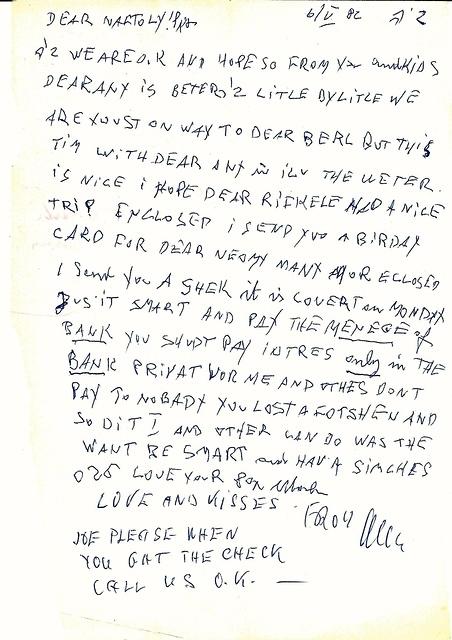 DEAR 6/V 82 A'2
A'2 WE ARE O.K AND HOPE SO FROM You and KIDS
DEAR ANY IS BETER A'2 LITLE BYLITLE WE
ARE YOUST ON WAY TO DEAR BERL BUT THIS
TIM WITH DEAR ANY THE WETER
IS NICE I HOPE DEAR RIFKELE HAD A NICE
TRIP ENCLOSED I SEND YOU A BIRDAY
CARD FOR DEAR NEOMY MANY MOR ECLOSED
I Send You A SHEK it is COVERT on MONDAY
BUS'IT SMART AND PAY THE MENEGE of
BANK YOU SHUDT PAY INTRES only in THE
BANK PRIVAT WOR ME AND OTHES DONT
PAY TO NOBADY YOU LOST A FOTSHEN AND
SO DIT I AND OTHER CAN DO WAS THE
WANT BE SMART and HAV A SIMCHES
LOVE YOUR
LOVE AND KISSES FROM
JOE PLEASE WHEN
YOU GAT THE CHECK
CALL US O.K. —